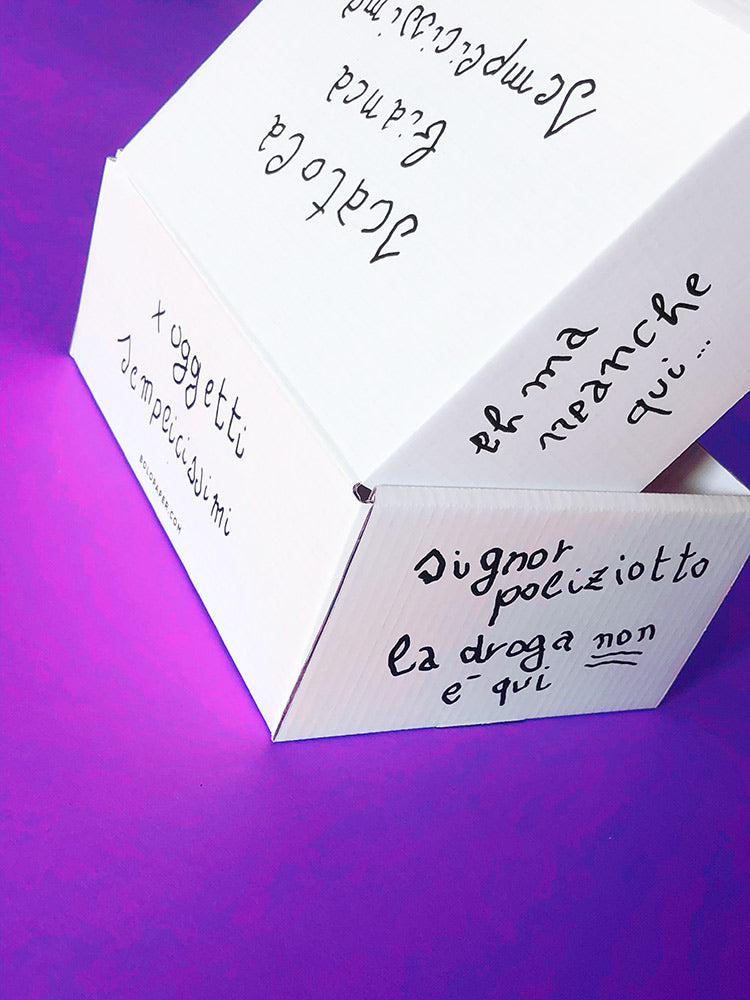 Scatola
bianca
Semplicissima
x oggetti
semplicissimi
BOLOPAPER.COM
eh ma
neanche
qui...
signor
poliziotto
la droga non
e- qui